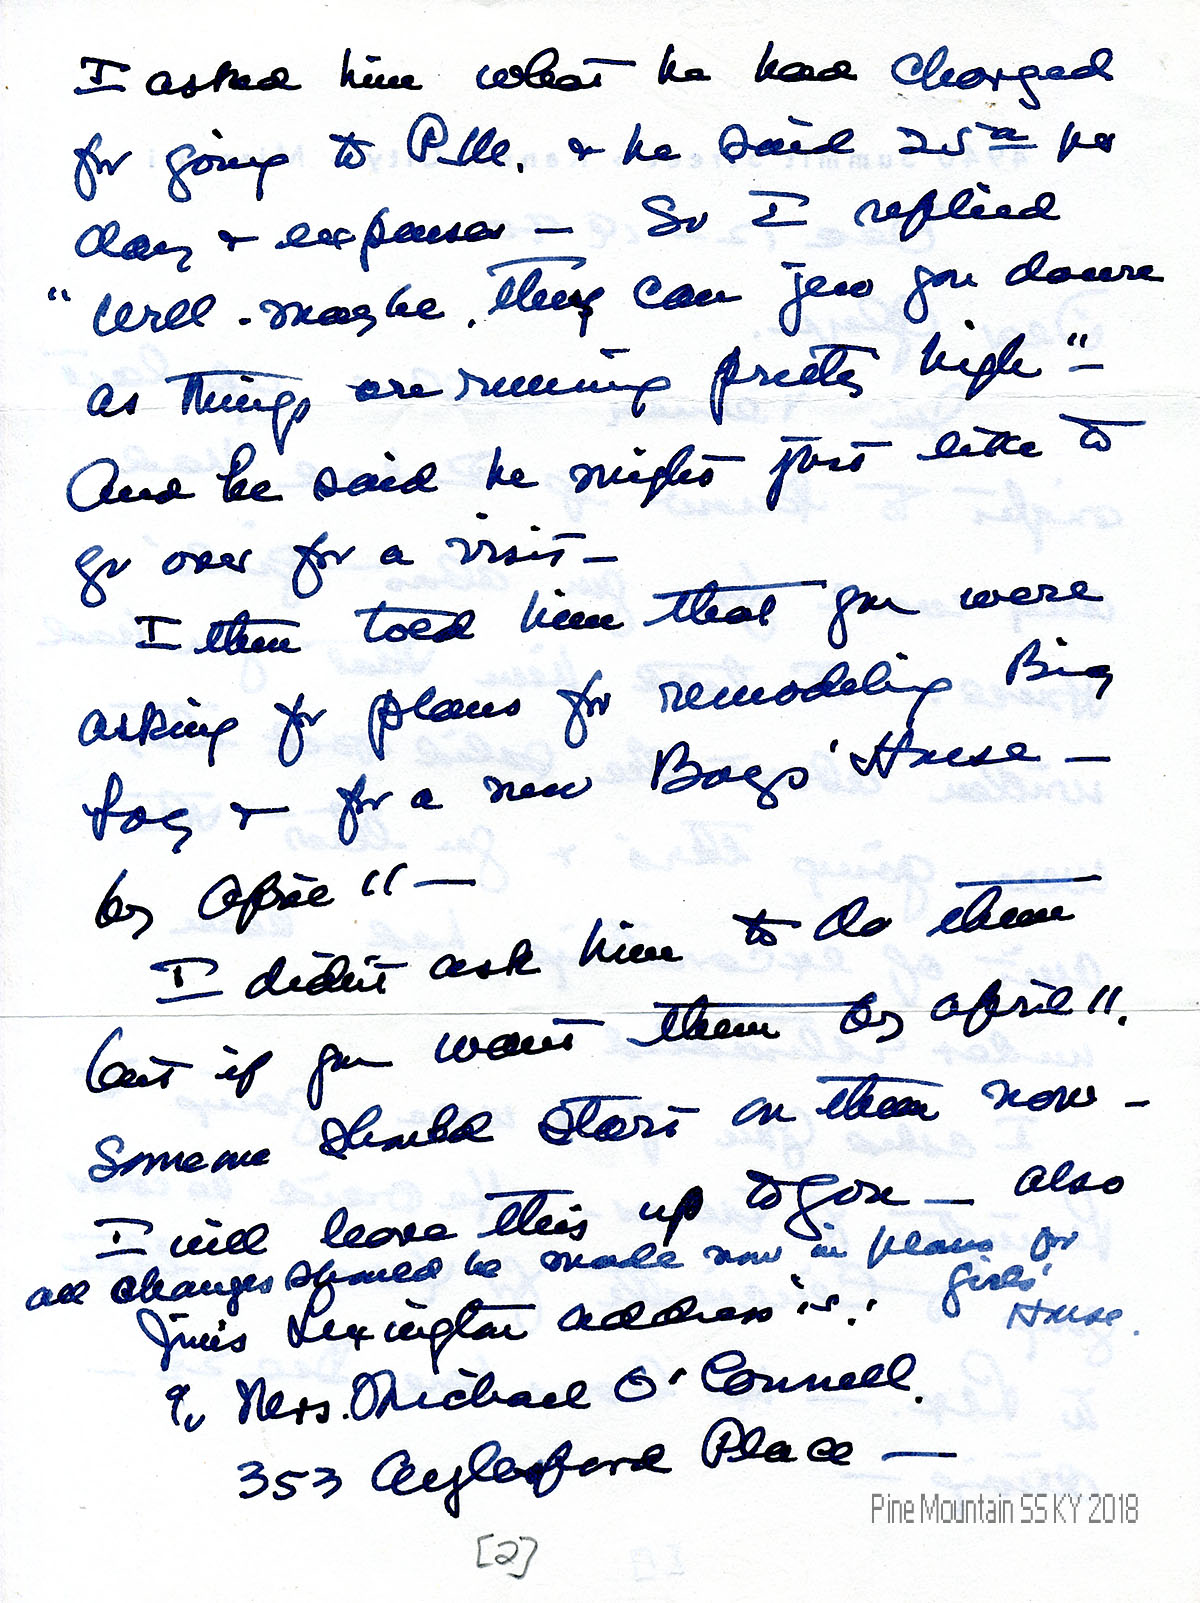 I asked him what he had charged
for going to P.M. & he said 25 a per
day & expenses — So I replied
"Well - maybe, they can jew you down
as things are running pretty high" —
And he said he might just like to
go over for a visit —
I then told him that you were
asking for plans for remodeling Big
Log & — for a new Boys' House —
by April 11 —
I didn't ask him to do them
but if you want them by April 11.
someone should start on them now —
I will leave this up to you — also
all changes should be made now in plans for
girls'
House.
Jim's Lexington address is:
c/o Mrs. Michael O'Connell.
353 Aylesford Place —
Pine Mountain SS KY 2018
[2]